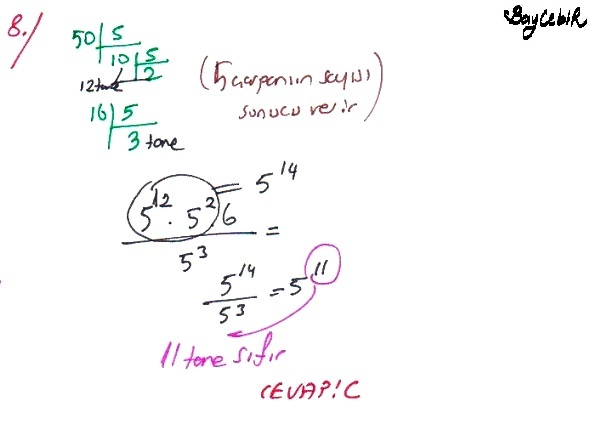 BayCebiR
8./
50 | 5
10 | 5
2
12 tane
16 | 5
3 tane
(5 çarpanının sayısı
sonucu verir)
5^12 . 5^2 . 6 = 5^14
5^3 =
5^14 / 5^3 = 5^11
11 tane sıfır
CEVAP: C